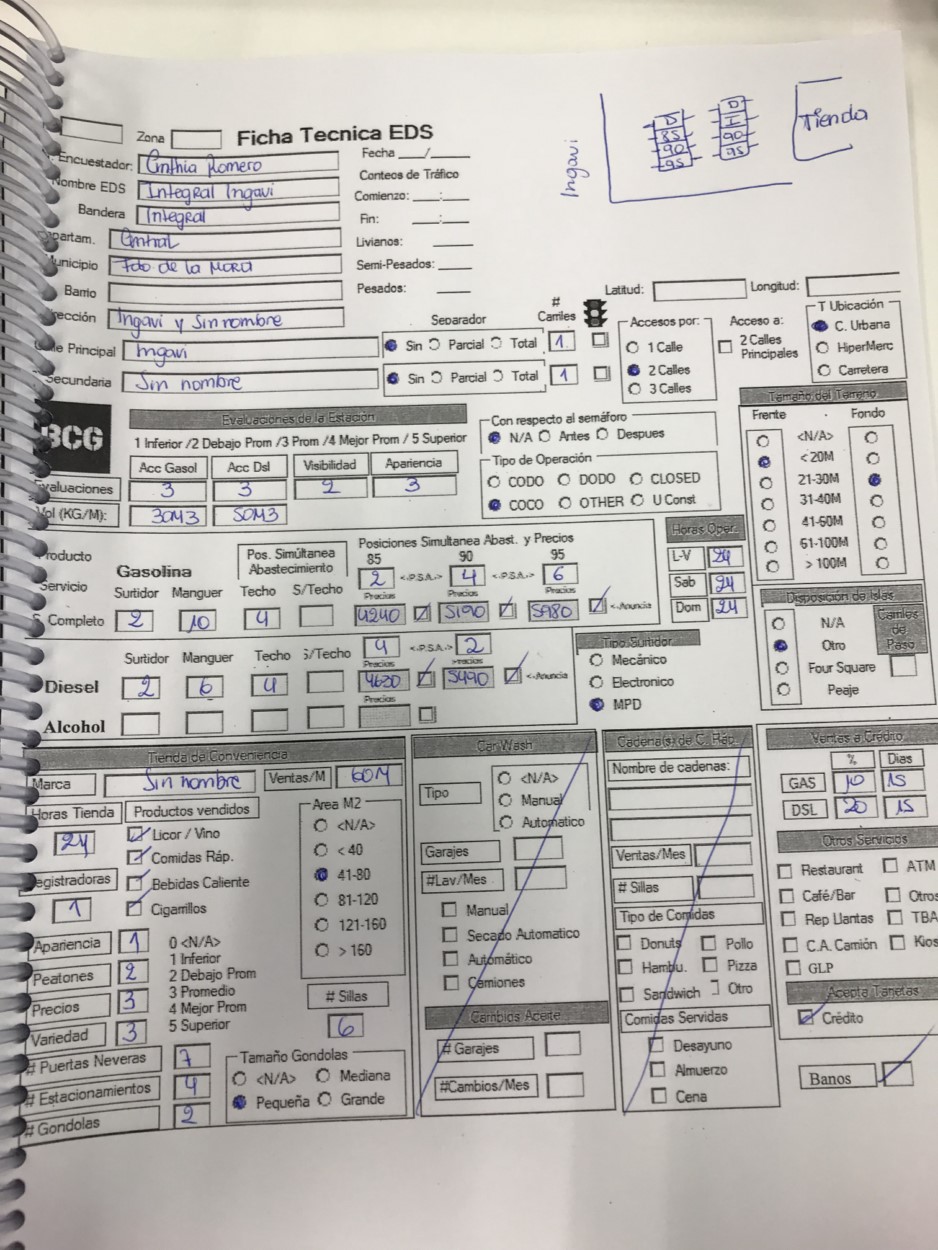 Zona
Ficha Tecnica EDS
Encuestador: Cinthia Romero
Fecha ___/____
Nombre EDS Integral Ingavi
Conteos de Tráfico
Bandera Integral
Comienzo: ___:___
Departam. Central
Fin: ___:___
Municipio Fdo de la Mora
Livianos: ____
Barrio
Semi-Pesados: ____
Pesados: ____
Dirección Ingavi y Sin nombre
Calle Principal Ingavi
Secundaria Sin nombre
Ingavi
D
85
90
95
D
I
90
95
Tienda
Latitud: Longitud:
Separador
# Carriles
Sin Parcial Total 1
Sin Parcial Total 1
Accesos por:
1 Calle
2 Calles
3 Calles
Acceso a:
2 Calles Principales
T Ubicación
C. Urbana
HiperMerc
Carretera
BCG
Evaluaciones de la Estación
1 Inferior /2 Debajo Prom /3 Prom /4 Mejor Prom / 5 Superior
Acc Gasol Acc Dsl Visibilidad Apariencia
Evaluaciones 3 3 2 3
Vol (KG/M): 30M3 50M3
Con respecto al semáforo
N/A Antes Despues
Tipo de Operación
CODO DODO CLOSED
COCO OTHER U Const
Tamaño del Terreno
Frente Fondo
<N/A>
< 20M
21-30M
31-40M
41-60M
61-100M
> 100M
Producto
Servicio
S. Completo
Gasolina
Pos. Simúltanea Abastecimiento
Posiciones Simultanea Abast. y Precios
85 90 95
2 <-P.S.A.-> 4 <-P.S.A.-> 6
Surtidor Manguer Techo S/Techo
Precios Precios Precios
2 10 4 4240 5190 5980 <-Anuncia
Horas Oper.
L-V 24
Sab 24
Dom 24
Disposición de Islas
N/A
Otro
Four Square
Peaje
Carriles de Paso
Surtidor Manguer Techo S/Techo
4 <-P.S.A.-> 2
Precios Precios
Diesel 2 6 4 4620 5490 <-Anuncia
Precios
Alcohol
Tipo Surtidor
Mecánico
Electronico
MPD
Tienda de Conveniencia
Marca Sin nombre Ventas/M 60M
Horas Tienda
24
Registradoras
1
Productos vendidos
Licor / Vino
Comidas Ráp.
Bebidas Caliente
Cigarrillos
Area M2
<N/A>
< 40
41-80
81-120
121-160
> 160
Apariencia 1
Peatones 2
Precios 3
Variedad 3
0 <N/A>
1 Inferior
2 Debajo Prom
3 Promedio
4 Mejor Prom
5 Superior
# Sillas
6
# Puertas Neveras 7
# Estacionamientos 4
# Gondolas 2
Tamaño Gondolas
<N/A> Mediana
Pequeña Grande
Car Wash
Tipo
<N/A>
Manual
Automatico
Garajes
#Lav/Mes
Manual
Secado Automatico
Automático
Camiones
Cambios Aceite
# Garajes
#Cambios/Mes
Cadena(s) de C. Ráp.
Nombre de cadenas:
Ventas/Mes
# Sillas
Tipo de Comidas
Donuts Pollo
Hambu. Pizza
Sandwich Otro
Comidas Servidas
Desayuno
Almuerzo
Cena
Ventas a Crédito
% Dias
GAS 10 15
DSL 20 15
Otros Servicios
Restaurant ATM
Café/Bar Otros
Rep Llantas TBA
C.A. Camión Kios
GLP
Acepta Tarjetas
Crédito
Banos